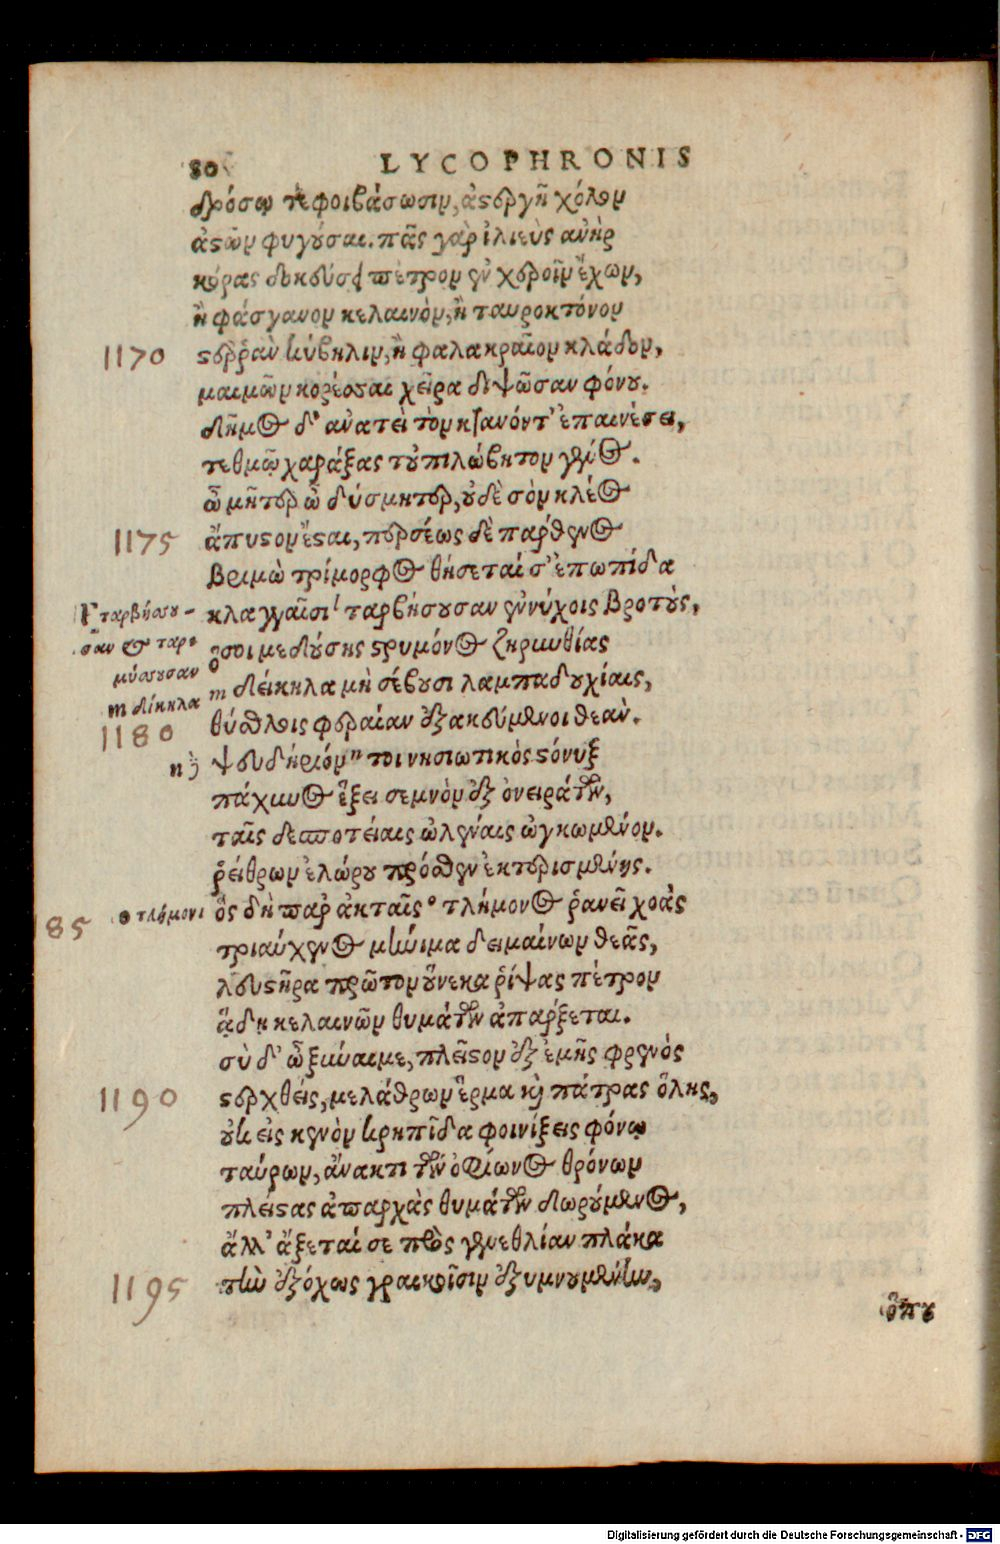 80 LYCOPHRONIS
δρόσῳ τε φοιβάσωσιν, ἀστεργῆ χόλον
ἀστῶν φυγοῦσαι. πᾶς γὰρ ἰλιεὺς ἀνὴρ
κόρας δοκεύσει πέτρον ἐν χεροῖν ἔχων,
ἢ φάσγανον κελαινὸν, ἢ ταυροκτόνον
1170 στερρὰν κύβηλιν, ἢ φαλακραῖον κλάδον,
μαιμῶν κορέσσαι χεῖρα διψῶσαν φόνου.
δῆμος δ' ἀνατεὶ τὸν κτανόντ' ἐπαινέσει,
τεθμῷ χαράξας τοὐπιλώβητον γένος.
ὦ μῆτερ ὦ δύσμητερ, οὐδὲ σὸν κλέος
1175 ἄπυστον ἔσται, περσέως δὲ παρθένος
βριμὼ τρίμορφος θήσεταί σ' ἐπωπίδα
κλαγγαῖσι ταρβήσουσαν ἐννύχοις βροτοὺς,
Γ ταρβήσου-
σαν & ταρ
μύσουσαν
ὅσοι μεδούσης στρυμόνος ζηρυνθίας
m δίκηλα
m δείκηλα μὴ σέβουσι λαμπαδουχίαις,
1180 θύσθλοις φεραίαν ἐξακεύμενοι θεάν.
ψευδήριόν n τοι νησιωτικὸς στόνυξ
πάχυνος ἕξει σεμνὸν ἐξ ὀνειράτων,
ταῖς δεσποτείαις ὠλέναις ὠγκωμένον.
ῥείθρων ἑλώρου πρόσθεν ἐκτερισμένης.
85 ο τλήμονι ὃς δὴ παρ' ἀκταῖς ο τλήμονος ῥανεῖ χοὰς
τριαύχενος μήνιμα δειμαίνων θεᾶς,
λευστῆρα πρῶτον οὕνεκα ῥίψας πέτρον
ᾅδῃ κελαινῶν θυμάτων ἀπάρξεται.
σὺ δ' ὦ ξύναιμε, πλεῖστον ἐξ ἐμῆς φρενὸς
1190 στερχθεὶς, μελάθρων ἕρμα καὶ πάτρας ὅλης,
οὐκ εἰς κενὸν κρηπῖδα φοινίξεις φόνῳ
ταύρων, ἄνακτι τῶν ὀφίωνος θρόνων
πλείστας ἀπαρχὰς θυμάτων δωρούμενος,
ἀλλ' ἄξεταί σε πρὸς γενεθλίαν πλάκα
1195 τὴν ἐξόχως γραικοῖσιν ἐξυμνουμένην,
ὅπου
Digitalisierung gefördert durch die Deutsche Forschungsgemeinschaft - DFG